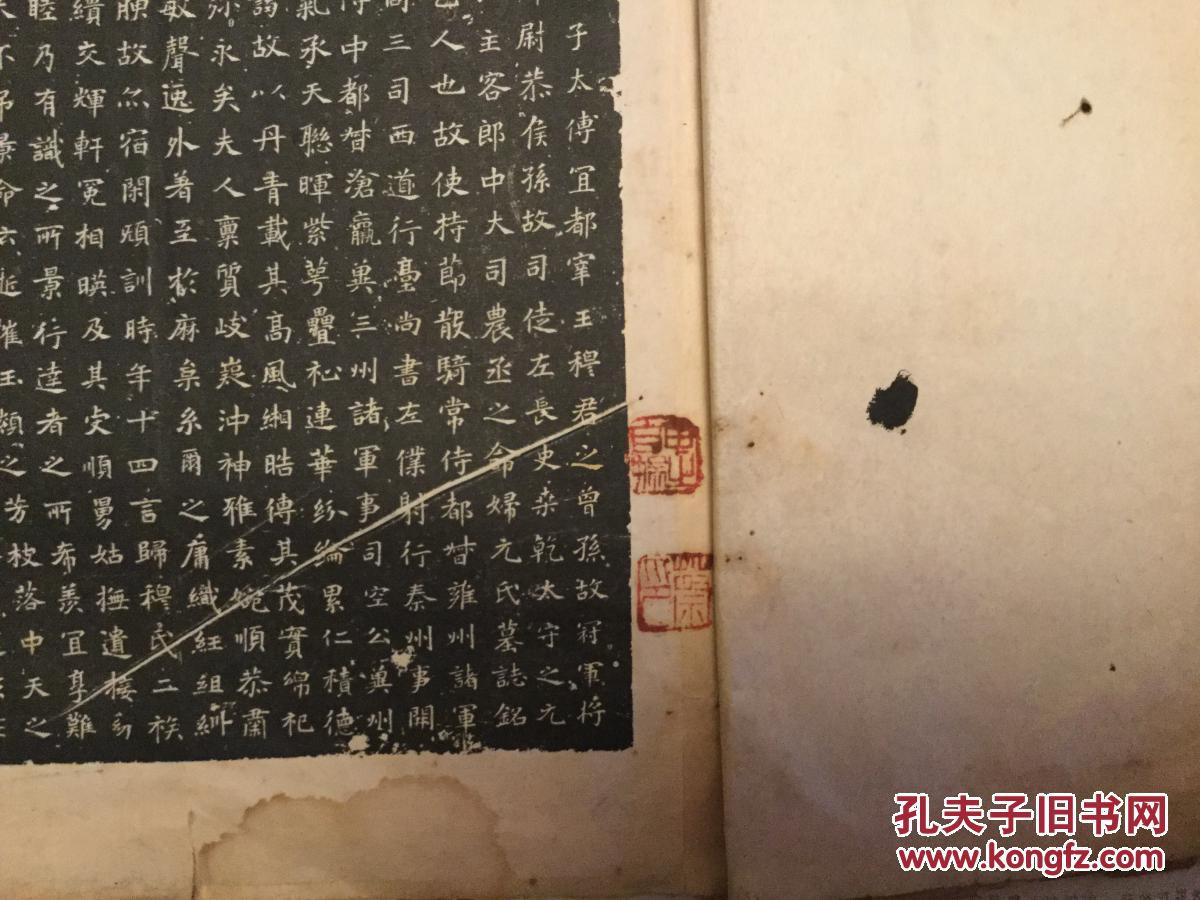 子太傅宜都宰王穆君之曾孫故冠軍將
尉恭侯孫故司徒左長史桒乾太守之元
主客郎中大司農丞之命婦元氏墓誌銘
人也故使持節散騎常侍都督雍州諸軍
三司西道行臺尚書左僕射行秦州事開
中都督滄瀛兾三州諸軍事司空公兾州
氣承天聮暉紫萼疊祉連華絲綸累仁積德
故以丹青載其高風緗皓傳其茂實綿祀
永矣夫人稟質岐嶷沖神雅素婉順恭肅
敏聲逸外著至於麻枲糸爾之庸織紝組紃
故尒宿閑頋訓時年十四言歸穆氏二族
繢交輝軒冕相暎及其
姑撫遺接
睦乃有識之所景行達者之所希羨宜享難
命
玉頯之芳枝落中天之
孔夫子旧书网
www.kongfz.com